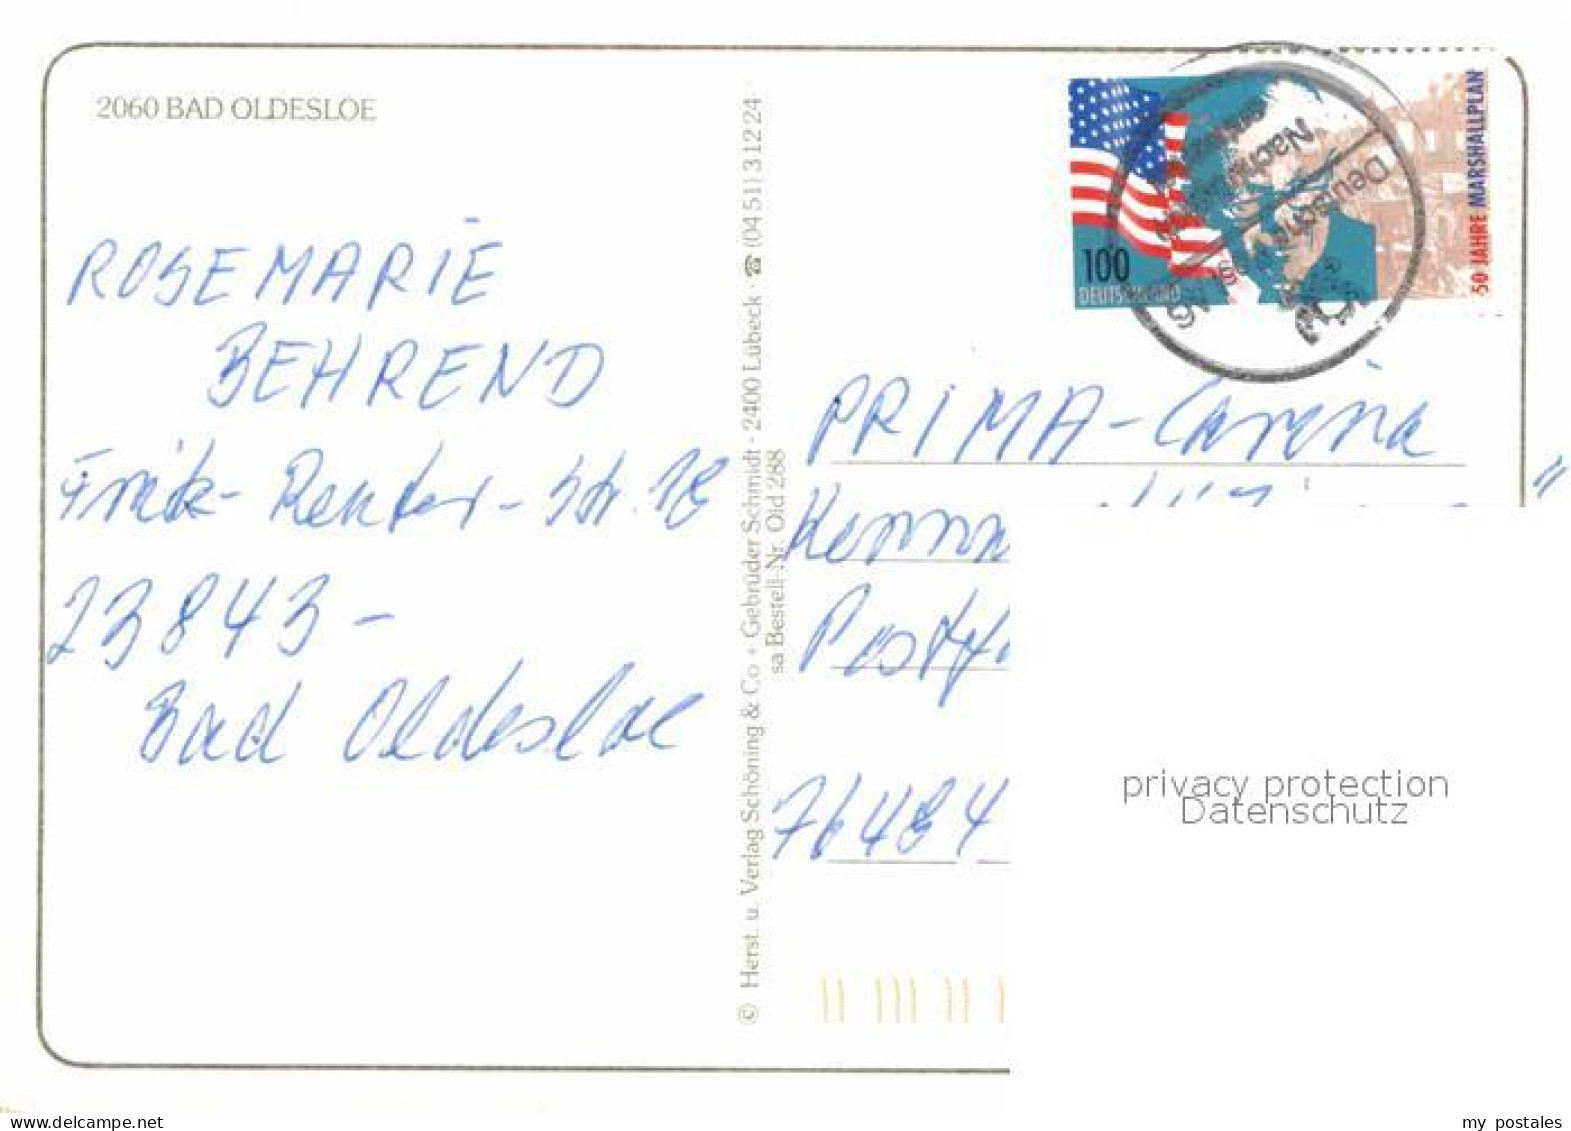 2060 BAD OLDESLOE
ROSEMARIE
BEHREND
Fritz-Reuter-Str. 18
23843-
Bad Oldesloe
© Herst. u. Verlag Schöning & Co + Gebrüder Schmidt · 2400 Lübeck · ☎ (0451) 31224
sa Bestell-Nr. Old 288
100
DEUTSCHLAND
50 JAHRE MARSHALLPLAN
Deutsche
PRIMA-Carina
"
76484
privacy protection
Datenschutz
www.delcampe.net
my_postales